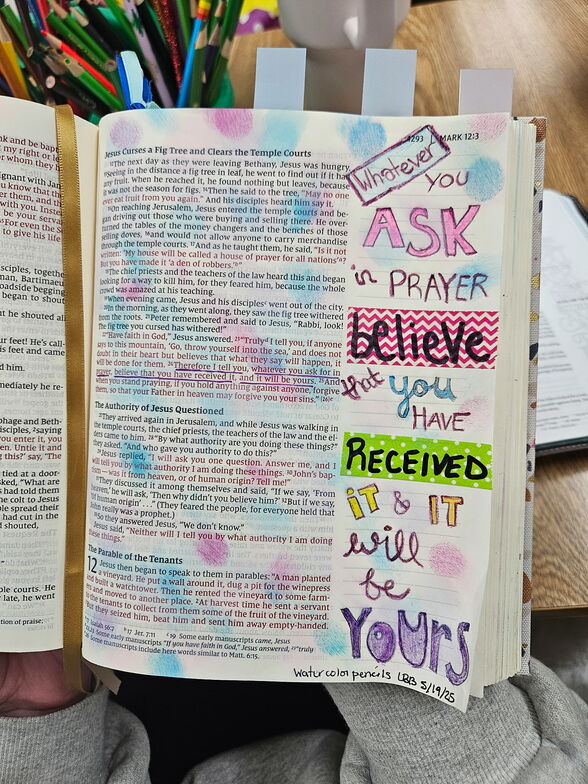 nk and be bap
my right or le
or whom they h
ignant with Jan
u know that th
er them, and th
with you. Inste
be your serva
For even the S
to give his life
sciples, togethe
an, Bartimaeu
adside begging
began to shout
ut he shouted all
ur feet! He's call
s feet and came
d him.
mediately he re-
phage and Beth-
disciples, saying
you enter it, you
en. Untie it and
this?' say, 'The
tied at a door-
asked, "What are
s had told them
e colt to Jesus
ple spread their
had cut in the
shouted,
courts. He
late, he went
tion of praise;
1293 MARK 12:3
Jesus Curses a Fig Tree and Clears the Temple Courts
12The next day as they were leaving Bethany, Jesus was hungry.
13Seeing in the distance a fig tree in leaf, he went to find out if it had
any fruit. When he reached it, he found nothing but leaves, because
it was not the season for figs. 14Then he said to the tree, "May no one
ever eat fruit from you again." And his disciples heard him say it.
15On reaching Jerusalem, Jesus entered the temple courts and be-
gan driving out those who were buying and selling there. He over-
turned the tables of the money changers and the benches of those
selling doves, 16and would not allow anyone to carry merchandise
through the temple courts. 17And as he taught them, he said, "Is it not
written: 'My house will be called a house of prayer for all nations'?
But you have made it 'a den of robbers.'"
18The chief priests and the teachers of the law heard this and began
looking for a way to kill him, for they feared him, because the whole
crowd was amazed at his teaching.
19When evening came, Jesus and his disciples went out of the city.
20In the morning, as they went along, they saw the fig tree withered
from the roots. 21Peter remembered and said to Jesus, "Rabbi, look!
The fig tree you cursed has withered!"
22"Have faith in God," Jesus answered. 23"Truly I tell you, if anyone
says to this mountain, 'Go, throw yourself into the sea,' and does not
doubt in their heart but believes that what they say will happen, it
will be done for them. 24Therefore I tell you, whatever you ask for in
prayer, believe that you have received it, and it will be yours. 25And
when you stand praying, if you hold anything against anyone, forgive
them, so that your Father in heaven may forgive you your sins." [26]
The Authority of Jesus Questioned
27They arrived again in Jerusalem, and while Jesus was walking in
the temple courts, the chief priests, the teachers of the law and the el-
ders came to him. 28"By what authority are you doing these things?"
they asked. "And who gave you authority to do this?"
29Jesus replied, "I will ask you one question. Answer me, and I
will tell you by what authority I am doing these things. 30John's bap-
tism—was it from heaven, or of human origin? Tell me!"
31They discussed it among themselves and said, "If we say, 'From
heaven,' he will ask, 'Then why didn't you believe him?' 32But if we say,
'Of human origin' . . ." (They feared the people, for everyone held that
John really was a prophet.)
33So they answered Jesus, "We don't know."
Jesus said, "Neither will I tell you by what authority I am doing
these things."
The Parable of the Tenants
12 Jesus then began to speak to them in parables: "A man planted
a vineyard. He put a wall around it, dug a pit for the winepress
and built a watchtower. Then he rented the vineyard to some farm-
ers and moved to another place. 2At harvest time he sent a servant
to the tenants to collect from them some of the fruit of the vineyard.
3But they seized him, beat him and sent him away empty-handed.
17 Isaiah 56:7 17 Jer. 7:11 19 Some early manuscripts came, Jesus
22 Some early manuscripts "If you have faith in God," Jesus answered, 23"truly
26 Some manuscripts include here words similar to Matt. 6:15.
Whatever
YOU
ASK
in PRAYER
believe
that you
HAVE
RECEIVED
iT & IT
will
be
YOURS
Watercolor pencils LBB 5/19/25